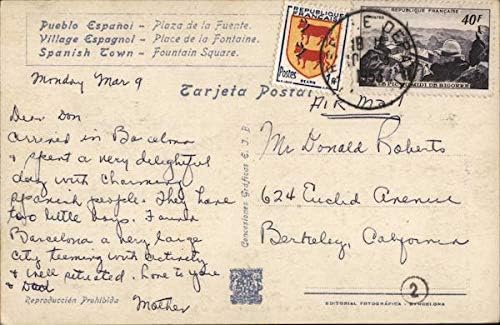 Pueblo Español - Plaza de la Fuente.
Village Espagnol - Place de la Fontaine.
Spanish Town - Fountain Square.
REPUBLIQUE FRANÇAISE
Postes
BEARN
REPUBLIQUE FRANÇAISE
40F
PIC DU MIDI DE BIGORRE
Monday Mar 9
Tarjeta Postal
AIR MAIL
Dear Don
arrived in Barcelona
& spent a very delightful
day with charming
spanish people. They have
two little boys. Found
Barcelona a very large
city teeming with activity
& well situated. Love to you
& Dad
Mother
Concesiones Gráficas E. I. B.
Mr Donald Roberts
624 Euclid Avenue
Berkeley, California
2
Reproducción Prohibida
EDITORIAL FOTOGRAFICA - BARCELONA